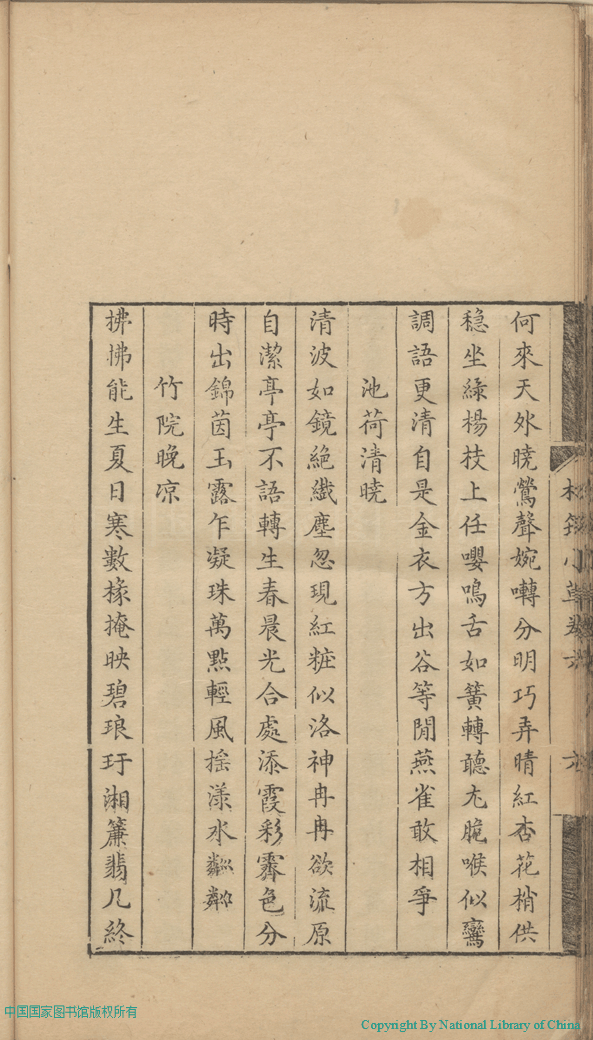 何來天外曉鶯聲婉囀分明巧弄晴紅杏花梢供
穩坐綠楊枝上任嚶鳴舌如簧轉聽尤脆喉似鶯
調語更清自是金衣方出谷等閒燕雀敢相爭
池荷清曉
清波如鏡絕纖塵忽現紅粧似洛神冉冉欲流原
自潔亭亭不語轉生春晨光合處添霞彩霽色分
時出錦茵玉露乍凝珠萬點輕風搖漾水粼粼
竹院晚凉
拂拂能生夏日寒數椽掩映碧琅玕湘簾翡几終
小草卷六
六
中国国家图书馆版权所有
Copyright By National Library of China